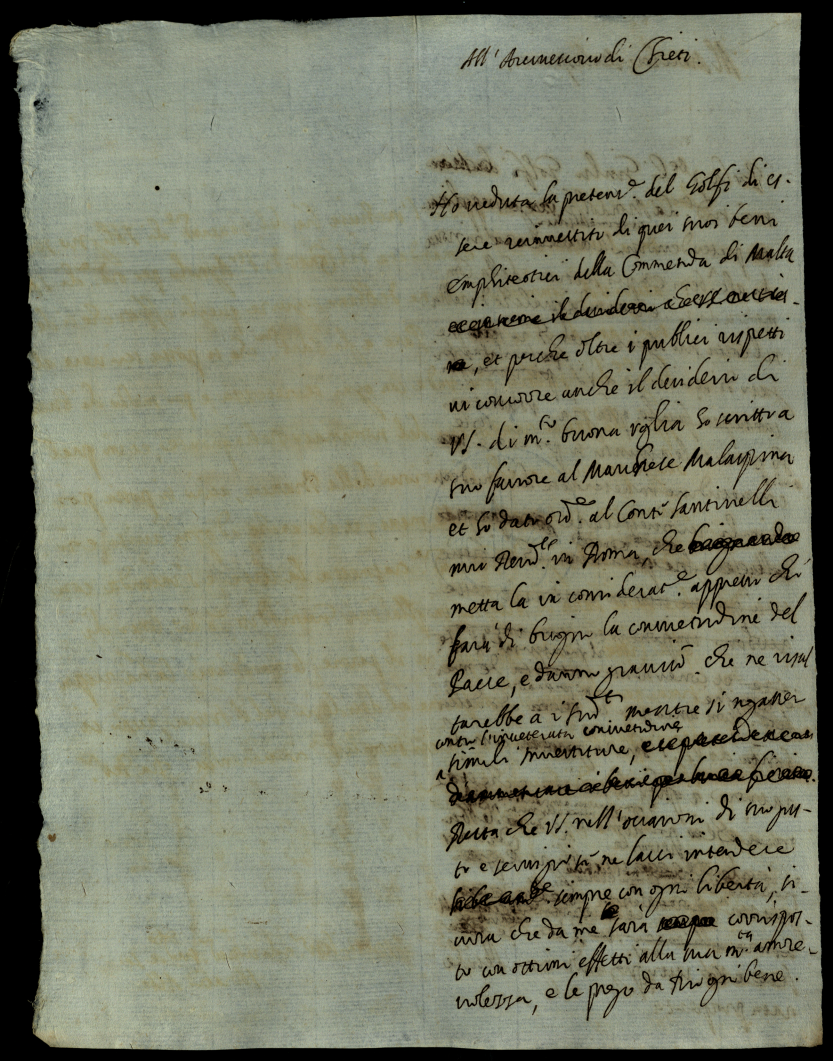 All' Arcivescovo di Chieti.
Ho veduta la pretens.e del Golfi di es-
sere rinvestito di quei suoi beni
emphiteotici della Commenda di Malta
il desiderio che
et perche oltre i publici rispetti
vi concorre anche il desiderio di
VS. di m.to buona voglia ho scritto a
suo favore al Marchese Malaspina
et ho dato ord.e al Conte Santinelli
mio Resid.te in Roma, che
metta la in considerat.e appresso chi
farà di bisogno la consuetudine del
Paese, e danno graviss.o che ne risul
tarebbe a i sud.ti mentre si negasser
contro l'inveterata consuetudine
simili investiture,
Resta che VS. nell'occasioni di suo gus-
to e servigio me lasci intendere
sempre con ogni libertà, si-
cura che da me le sarà corrispos-
to con ottimi effetti alla sua m.ta amore-
volezza, e le prego da Dio ogni bene.